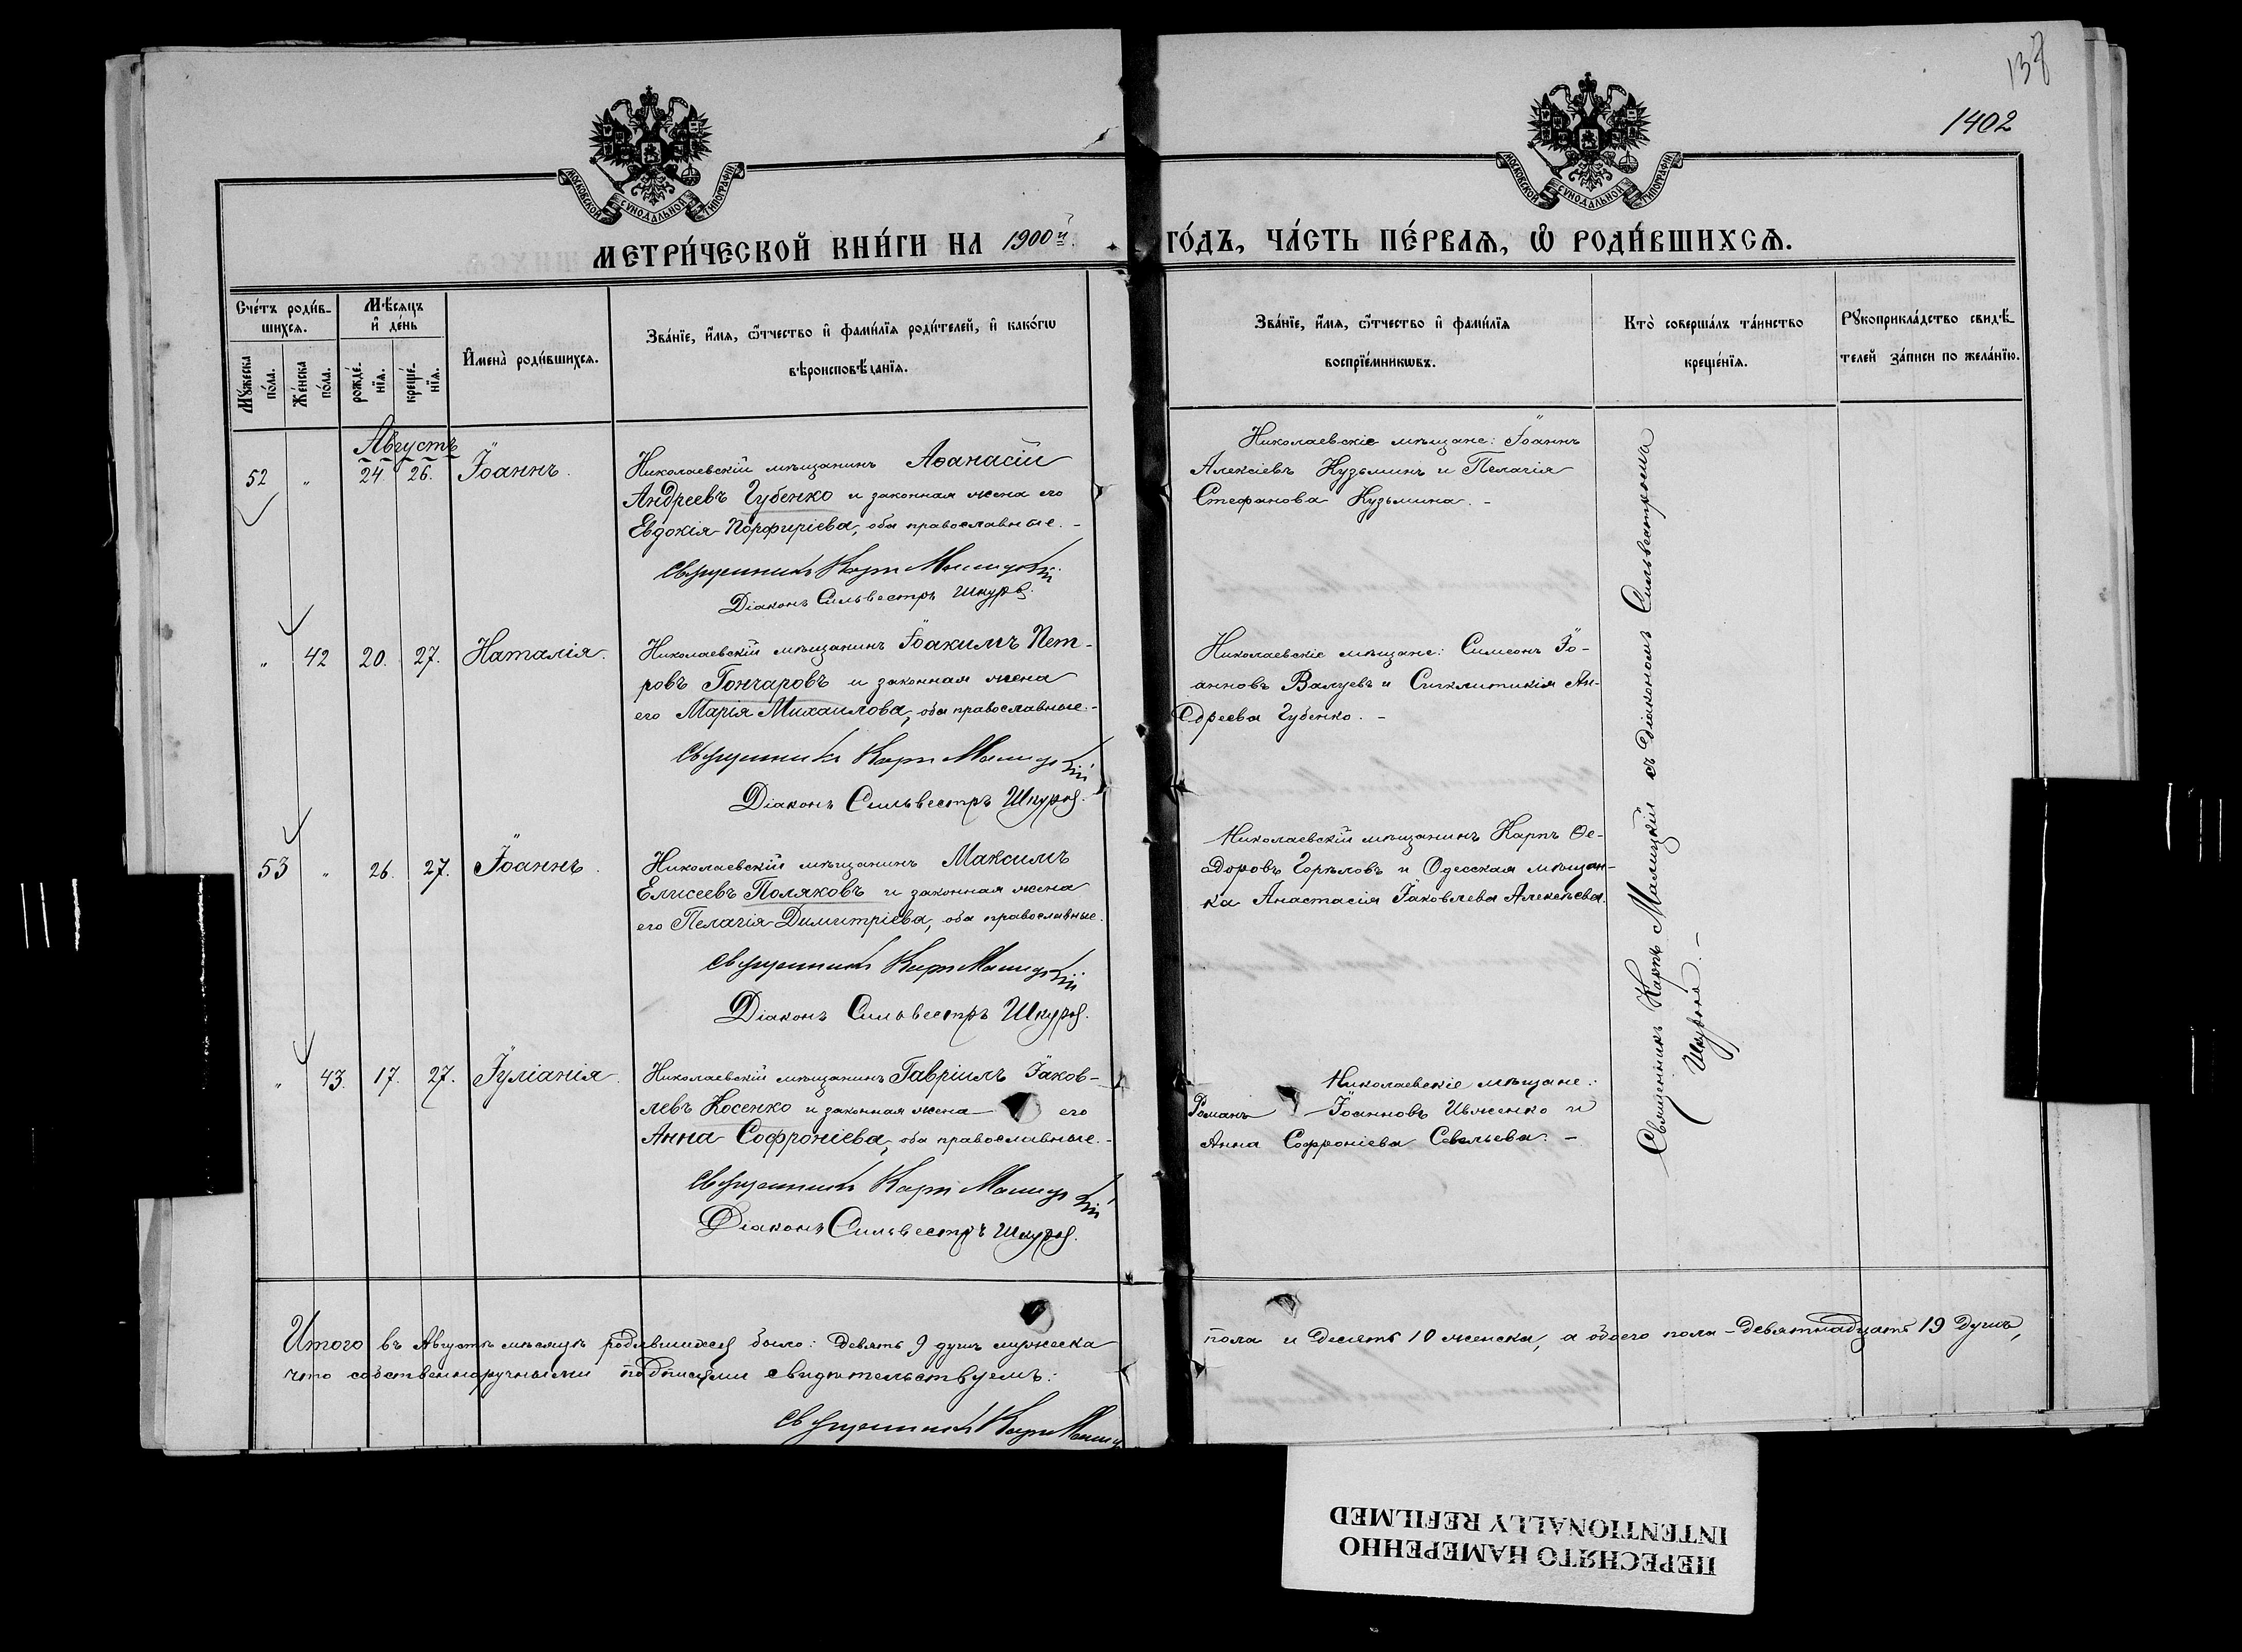 138
1402
МОСКОВСКОЙ СѴНОДАЛЬНОЙ ТИПОГРАФІИ
МОСКОВСКОЙ СѴНОДАЛЬНОЙ ТИПОГРАФІИ
МЕТРИ́ЧЕСКОЙ КНИ́ГИ НА 1900й. ГО́ДЪ, ЧА́СТЬ ПЕ́РВАѦ, Ѡ҆ РОДИ́ВШИХСѦ.
Сче́тъ роди́в-
шихсѧ.
Мꙋ́жеска по́ла.
Же́нска по́ла.
Мѣ́сѧцъ
и҆ де́нь
рожде́-
нїѧ.
креще́-
нїѧ.
И҆мена̀ роди́вшихсѧ.
Зва́нїе, и҆́мѧ, ѻ҆́тчество и҆ фами́лїѧ роди́телей, и҆ како́гѡ
вѣроисповѣ́данїѧ.
Зва́нїе, и҆́мѧ, ѻ҆́тчество и҆ фами́лїѧ
воспрїе́мникѡвъ.
Кто̀ соверша́лъ та́инство
креще́нїѧ.
Рꙋкоприкла́дство свидѣ́-
телей за́писи по жела́нїю.
Августъ
52 " 24. 26. Іоаннъ.
Николаевскій мѣщанинъ Аѳанасій
Андреевъ Губенко и законная жена его
Евдокія Порфиріева, оба православные. -
Священникъ Карпъ Малицкій
Діаконъ Сильвестръ Шкуро.
Николаевскіе мѣщане: Іоаннъ
Алексіевъ Кузьминъ и Пелагія
Стефанова Кузьмина. -
" 42 20. 27. Наталія.
Николаевскій мѣщанинъ Іоакимъ Пет-
ровъ Гончаровъ и законная жена
его Марія Михаилова, оба православные. -
Священникъ Карпъ Малицкій
Діаконъ Сильвестръ Шкуро.
Николаевскіе мѣщане: Симеонъ Іо-
анновъ Валуевъ и Сигклитикія Ан-
дреева Губенко. -
53 " 26. 27. Іоаннъ.
Николаевскій мѣщанинъ Максимъ
Елисеевъ Поляковъ и законная жена
его Пелагія Димитріева, оба православные.
Священникъ Карпъ Малицкій
Діаконъ Сильвестръ Шкуро.
Николаевскій мѣщанинъ Карпъ Ѳе-
доровъ Горѣловъ и Одесская мѣщан-
ка Анастасія Іаковлева Алексѣева.
" 43. 17. 27. Іуліанія.
Николаевскій мѣщанинъ Гавріилъ Іаков-
левъ Косенко и законная жена его
Анна Софроніева, оба православные. -
Священникъ Карпъ Малицкій
Діаконъ Сильвестръ Шкуро.
Николаевскіе мѣщане:
Романъ Іоанновъ Ивженко и
Анна Софроніева Савельева. -
Священникъ Карпъ Малицкій съ діакономъ Сильвестромъ
Шкуромъ. -
Итого въ Августѣ мѣсяцѣ родившихся было: девять 9 душъ мужеска пола и десять 10 женска, а обоего пола - девятнадцать 19 душъ,
что собственноручными подписями свидѣтельствуемъ:
Священникъ Карпъ
ПЕРЕСНЯТО НАМЕРЕННО
INTENTIONALLY REFILMED